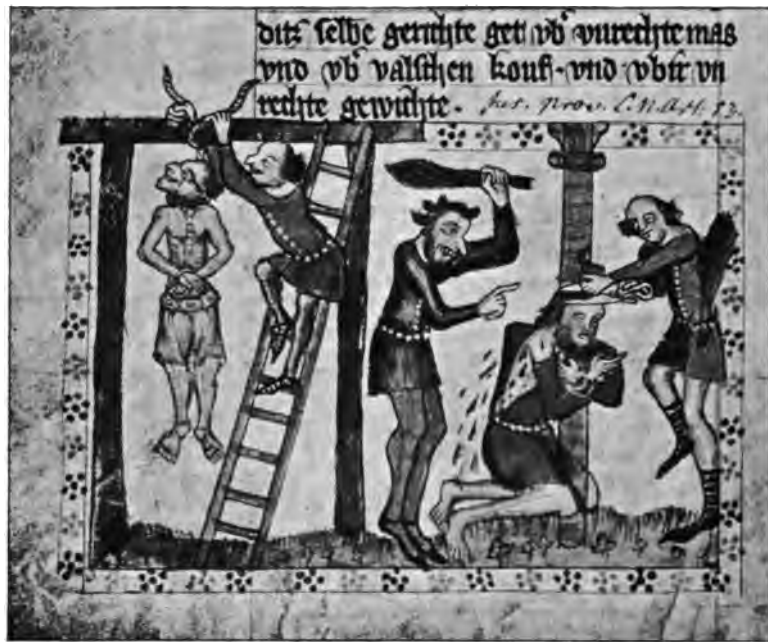 ditz selbe gerichte get vb' vnrechte mas
vnd vb' valschen kouf· vnd vb'ir vn
rechte gewichte· Jus. prov.